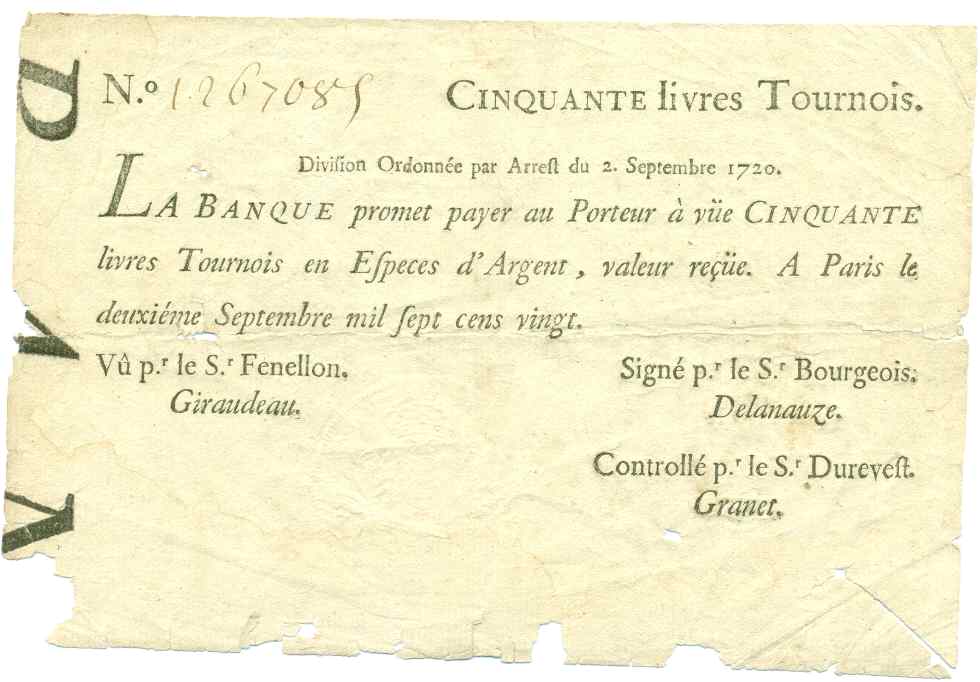 N.º 1267085 CINQUANTE livres Tournois.
Diviſion Ordonnée par Arreſt du 2. Septembre 1720.
LA BANQUE promet payer au Porteur à vüe CINQUANTE
livres Tournois en Eſpeces d'Argent, valeur reçüe. A Paris le
deuxiéme Septembre mil ſept cens vingt.
Vû p.r le S.r Fenellon.
Giraudeau.
Signé p.r le S.r Bourgeois.
Delanauze.
Controllé p.r le S.r Dureveſt.
Granet.